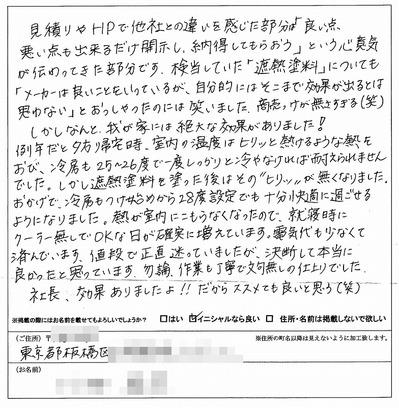 見積りやHPで他社との違いを感じた部分は「良い点、
悪い点も出来るだけ開示し、納得してもらおう」という心意気
が伝わってきた部分です。検当していた「遮熱塗料」についても
「メーカーは良いことをいっているが、自分的にはそこまで効果が出るとは
思わない」とおっしゃったのには笑いました。商売っ気が無さすぎる(笑)
しかしなんと、我が家には絶大な効果がありました!
例年だと夕方帰宅時、室内の温度はヒリッと熱けるような熱を
おび、冷房も25~26度で一度しっかりと冷やなければ耐えられません
でした。しかし遮熱塗料を塗った後はその"ヒリッ"が無くなりました。
おかげで、冷房もつけはじめから28度設定でも十分快適に過ごせる
ようになりました。熱が室内にこもらなくなったので、就寝時に
クーラー無しでOKな日が確実に増えています。電気代も少なくて
済んでいます。値段で正直迷っていましたが、決断して本当に
良かったと思っています。勿論、作業も丁寧で文句無しの仕上りでした。
社長、効果ありましたよ!!だからススメても良いと思う(笑)
※掲載の際にはお名前を載せてもよろしいでしょうか? □はい ☑イニシャルなら良い □ 住所・名前は掲載しないで欲しい
(ご住所) 〒 ※住所の町名以降は見えないように加工致します。
東京都板橋区
(お名前)